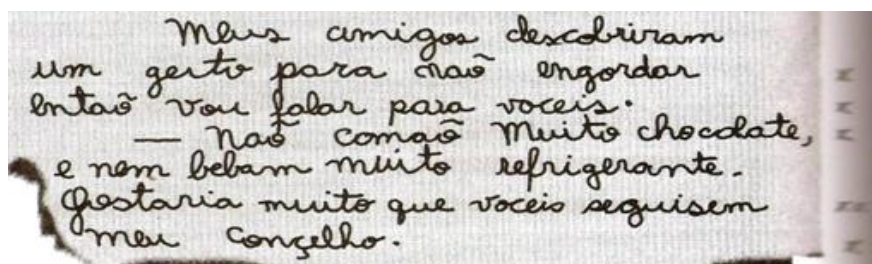 Meus amigos descobriram
um geito para naõ engordar
entaõ vou falar para voceis.
— Naõ comaõ muito chocolate,
e nem bebam muito refrigerante.
Gostaria muito que voceis seguisem
meu conçelho.